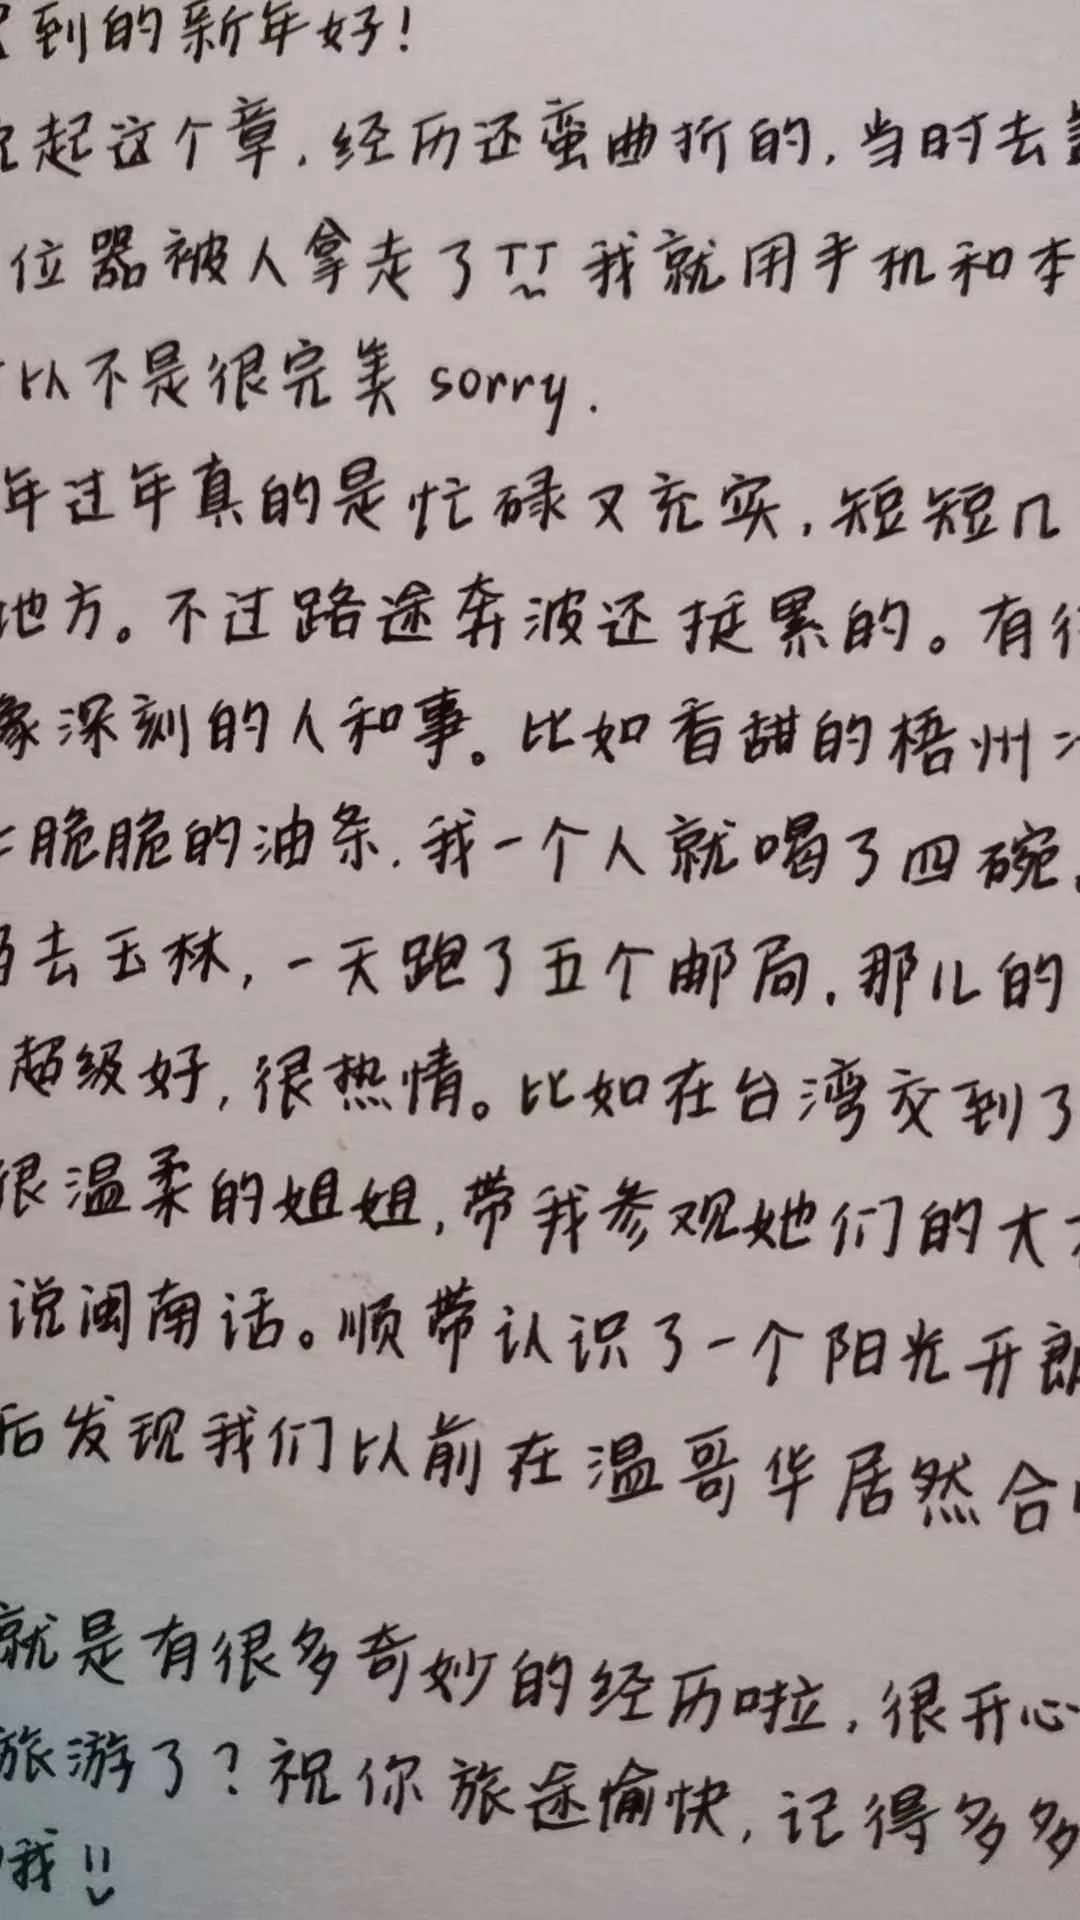 到的新年好！
起这个章，经历还蛮曲折的，当时去
位器被人拿走了TT 我就用手机和本
以不是很完美 sorry.
年过年真的是忙碌又充实，短短几
地方。不过路途奔波还挺累的。有
象深刻的人和事。比如香甜的梧州
脆脆的油条，我一个人就喝了四碗
去玉林，一天跑了五个邮局，那儿的
超级好，很热情。比如在台湾交到了
很温柔的姐姐，带我参观她们的大
说闽南话。顺带认识了一个阳光开朗
后发现我们以前在温哥华居然合
就是有很多奇妙的经历啦，很开心
旅游了？祝你旅途愉快，记得多多
我!!